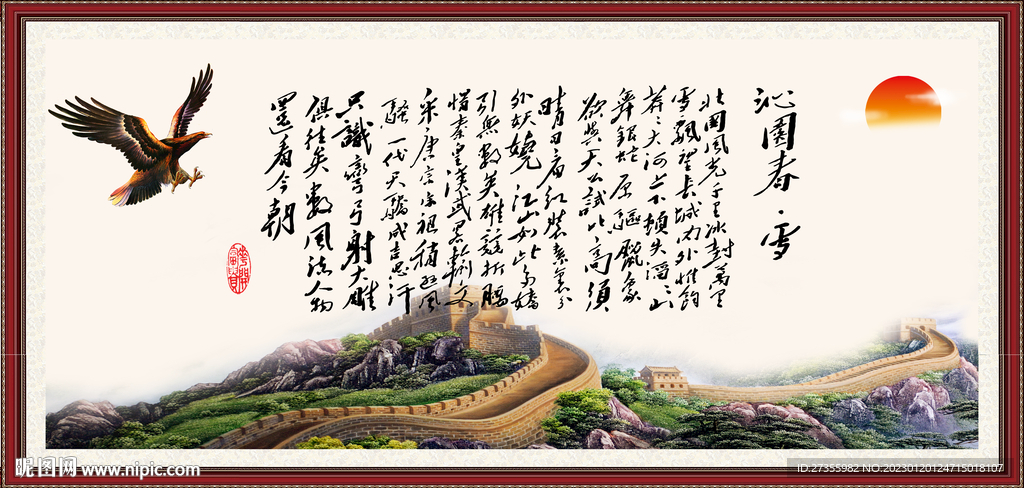 沁園春·雪
北國風光千里冰封萬里
雪飄望長城內外惟餘
莽莽大河上下頓失滔滔山
舞銀蛇原驅臘象
欲與天公試比高須
晴日看紅裝素裹分
外妖嬈江山如此多嬌
引無數英雄競折腰
惜秦皇漢武略輸文
采唐宗宋祖稍遜風
騷一代天驕成吉思汗
只識彎弓射大雕
俱往矣數風流人物
還看今朝
昵图网 www.nipic.com
ID:27355982 NO:20230120124715018107